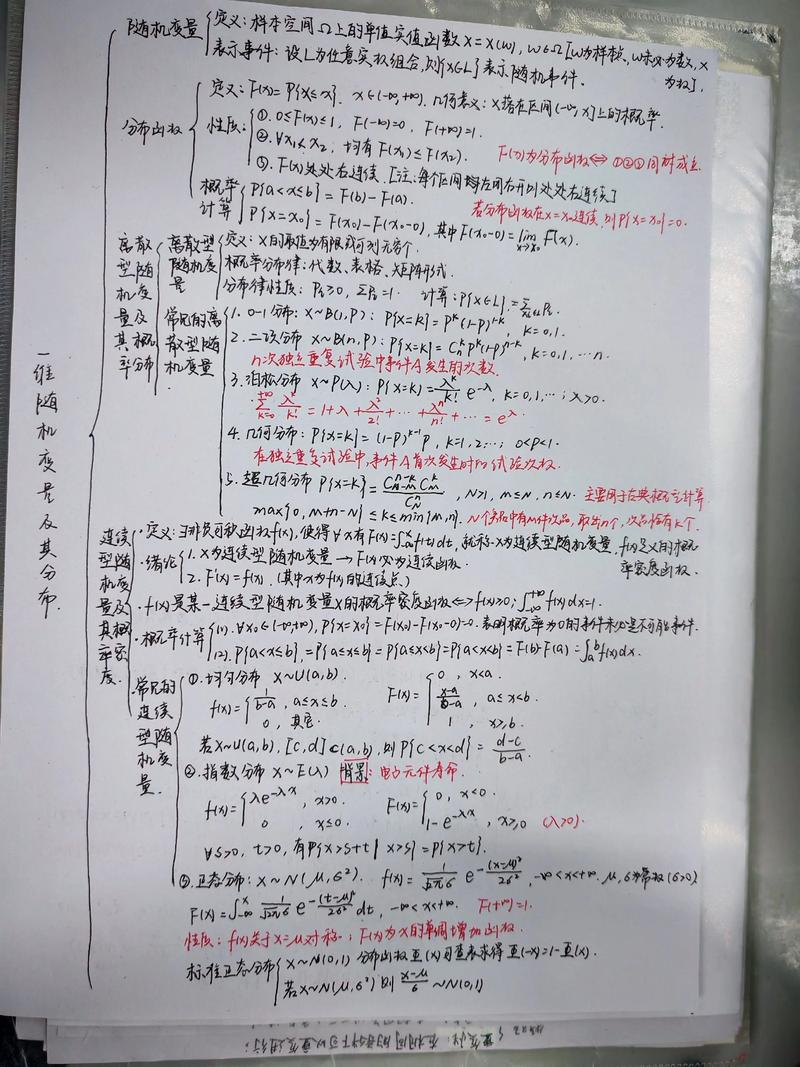 一维随机变量及其分布.
随机变量
定义:样本空间Ω上的单值实值函数X=X(ω), ω∈Ω [ω为样本点、ω未必为数, X为数],
表示事件:设L为任意实数组合,则{X∈L}表示随机事件.
分布函数
定义:F(x)=P{X≤x}. x∈(-∞,+∞). 几何意义:X落在区间(-∞,x]上的概率.
性质:
①. 0≤F(x)≤1, F(-∞)=0, F(+∞)=1.
②. ∀x₁<x₂, 均有F(x₁)≤F(x₂).
F(x)为分布函数⇔①②③同时成立.
③. F(x)处处右连续. [注:每个区间均左闭右开则处处右连续]
概率计算
P{a<X≤b}=F(b)-F(a).
若分布函数在x=x₀连续,则P{X=x₀}=0.
P{X=x₀}=F(x₀)-F(x₀-0), 其中F(x₀-0)=lim x→x₀⁻ F(x).
离散型随机变量及其概率分布
离散型随机变量
定义:X的取值为有限或可列无穷个.
概率分布律:代数、表格、矩阵形式.
分布律性质:Pᵢ≥0, ΣPᵢ=1. 计算:P{X∈L}=Σ xᵢ∈L Pᵢ.
常见的离散型随机变量.
1. 0-1分布: X~B(1,P): P{X=k}=Pᵏ(1-P)¹⁻ᵏ, k=0,1.
2. 二项分布 X~B(n,P): P{X=k}=Cₙᵏ Pᵏ(1-P)ⁿ⁻ᵏ, k=0,1,…n.
n次独立重复试验中事件A发生的次数.
3. 泊松分布 X~P(λ): P{X=k}=λᵏ/k! e^-λ, k=0,1,…; λ>0.
Σ k=0 +∞ λᵏ/k! = 1+λ+λ²/2!+…+λⁿ/n!+…=e^λ.
4. 几何分布: P{X=k}=(1-P)ᵏ⁻¹P, k=1,2,…; 0<P<1.
在独立重复试验中,事件A首次发生时的试验次数.
5. 超几何分布 P{X=k}= C_{N-M}^{n-k} C_M^k / C_N^n, N>1, m≤N, n≤N. 主要用于古典概型计算
max{0, M+n-N}≤k≤min{M,n}. N个产品中有M件次品,取出n个,次品恰有k个.
连续型随机变量及其概率密度.
·定义:∃非负可积函数f(x), 使得∀x有F(x)=∫_{-∞}^{x} f(t)dt, 就称X为连续型随机变量, f(x)定义的概率密度函数.
·结论
1. X为连续型随机变量→F(x)必为连续函数.
2. F'(x)=f(x). (其中x为f(x)的连续点)
·f(x)是某一连续型随机变量X的概率密度函数⇔f(x)≥0; ∫_{-∞}^{+∞} f(x)dx=1.
·概率计算
(1). ∀x₀∈(-∞,+∞), P{X=x₀}=F(x₀)-F(x₀-0)=0. 表明概率为0的事件未必是不可能事件.
(2). P{a<X≤b}=P{a≤X≤b}=P{a≤X<b}=P{a<X<b}=F(b)-F(a)=∫_a^b f(x)dx.
·常见的连续型随机变量.
①. 均匀分布 X~U(a,b).
f(x)={ 1/(b-a), a≤x≤b. 0, 其它.
F(x)={ 0, x<a. (x-a)/(b-a), a≤x<b. 1, x≥b.
若X~U(a,b), [c,d]⊂(a,b), 则P{c<X<d}=(d-c)/(b-a).
②. 指数分布 X~E(λ) 背景: 电子元件寿命.
f(x)={ λe^{-λx}, x>0. 0, x≤0.
F(x)={ 0, x<0. 1-e^{-λx}, x≥0 (λ>0).
∀s>0, t>0, 有P{X>s+t | X>s}=P{X>t}.
③. 正态分布: X~N(μ,σ²). f(x)=1/(√2π σ) e^{-(x-μ)²/2σ²}, -∞<x<+∞. μ,σ为常数(σ>0)
F(x)=∫_{-∞}^{x} 1/(√2π σ) e^{-(t-μ)²/2σ²} dt, -∞<x<+∞. F(+∞)=1.
性质: f(x)关于x=μ对称; F(x)为x的单调增加函数.
标准正态分布
X~N(0,1) 分布函数Φ(x)可查表求得 Φ(-x)=1-Φ(x).
若X~N(μ,σ²) 则 (X-μ)/σ ~N(0,1)